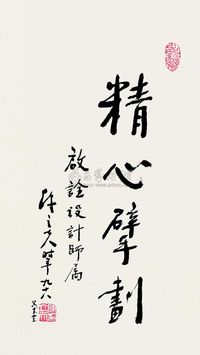 精心擘劃
啟詮設計師屬
陳立夫時年九